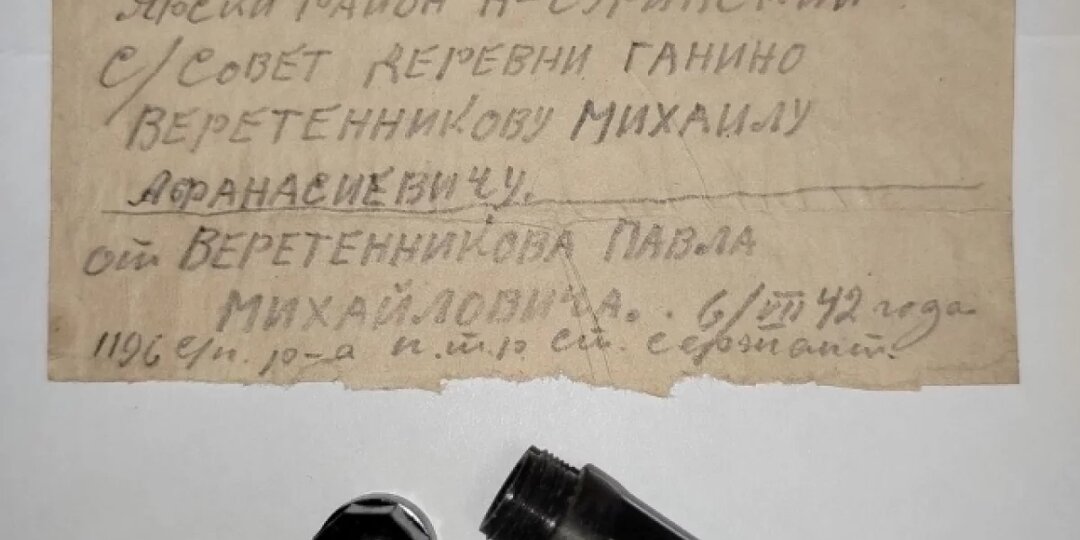 ЯРСКИ РАЙОН Н-СУРИНСКИЙ
С/СОВЕТ ДЕРЕВНИ ГАНИНО
ВЕРЕТЕННИКОВУ МИХАИЛУ
АФАНАСИЕВИЧУ.
от ВЕРЕТЕННИКОВА ПАВЛА
МИХАЙЛОВИЧА. 6/VII 42 года
1196 с/п. р-а п.т.р ст. сержант.